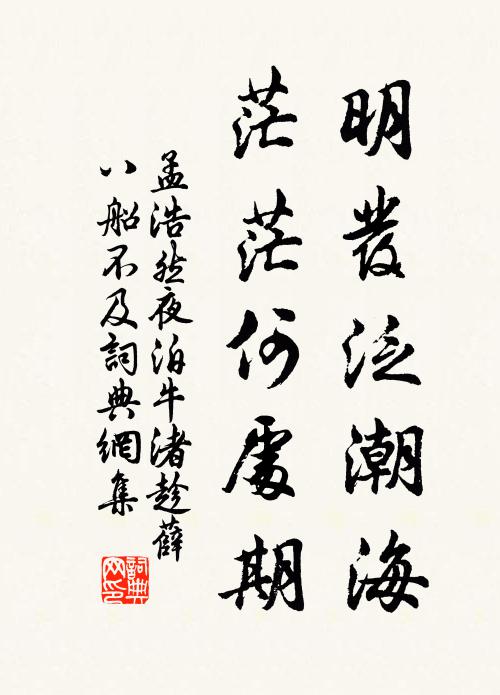 明發泛潮海
茫茫何處期
孟浩然夜泊牛渚趁薛
八船不及詞典網集
詞典
网印